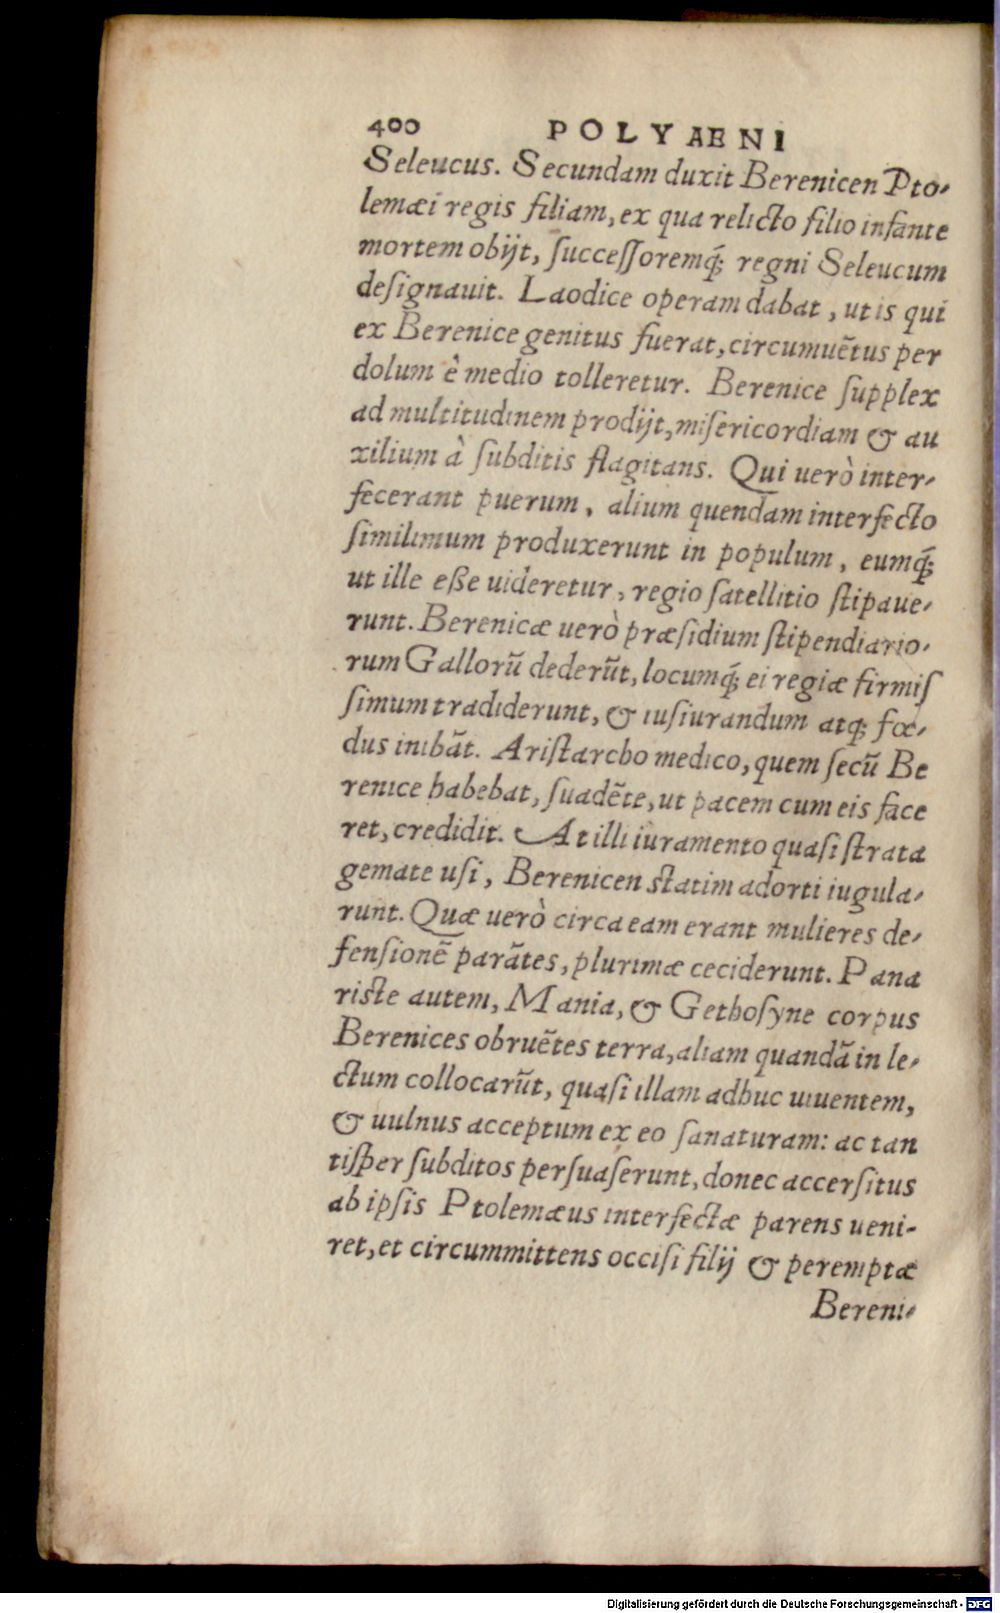 400 POLYAENI
Seleucus. Secundam duxit Berenicen Pto-
lemæi regis filiam, ex qua relicto filio infante
mortem obijt, ſucceſſoremq́; regni Seleucum
deſignauit. Laodice operam dabat, ut is qui
ex Berenice genitus fuerat, circumuẽtus per
dolum è medio tolleretur. Berenice ſupplex
ad multitudinem prodijt, miſericordiam & au
xilium à ſubditis flagitans. Qui uerò inter-
fecerant puerum, alium quendam interfecto
ſimilimum produxerunt in populum, eumq́;
ut ille eße uideretur, regio ſatellitio ſtipaue-
runt. Berenicæ uerò præſidium ſtipendiario-
rum Gallorũ dederũt, locumq́; ei regiæ firmiſ
ſimum tradiderunt, & iuſiurandum atq; fœ-
dus inibãt. Ariſtarcho medico, quem ſecũ Be
renice habebat, ſuadẽte, ut pacem cum eis face
ret, credidit. At illi iuramento quaſi ſtrata
gemate uſi, Berenicen ſtatim adorti iugula-
runt. Quæ uerò circa eam erant mulieres de-
fenſionẽ parãtes, plurimæ ceciderunt. Pana
riſte autem, Mania, & Gethoſyne corpus
Berenices obruẽtes terra, aliam quandã in le-
ctum collocarũt, quaſi illam adhuc uiuentem,
& uulnus acceptum ex eo ſanaturam: ac tan
tiſper ſubditos perſuaſerunt, donec accerſitus
ab ipſis Ptolemæus interfectæ parens ueni-
ret, et circummittens occiſi filij & peremptæ
Bereni-
Digitalisierung gefördert durch die Deutsche Forschungsgemeinschaft - DFG